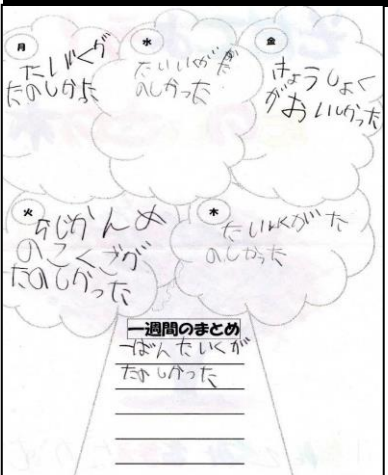 月
たいくが
たのしかた
水
たいいくがた
のしかった
金
きょうしょく
が おいしかった
火
じかんめ
のこくごが
たのしかった
木
たいいくがた
のしかった
一週間のまとめ
一ばんたいくが
たのしかった